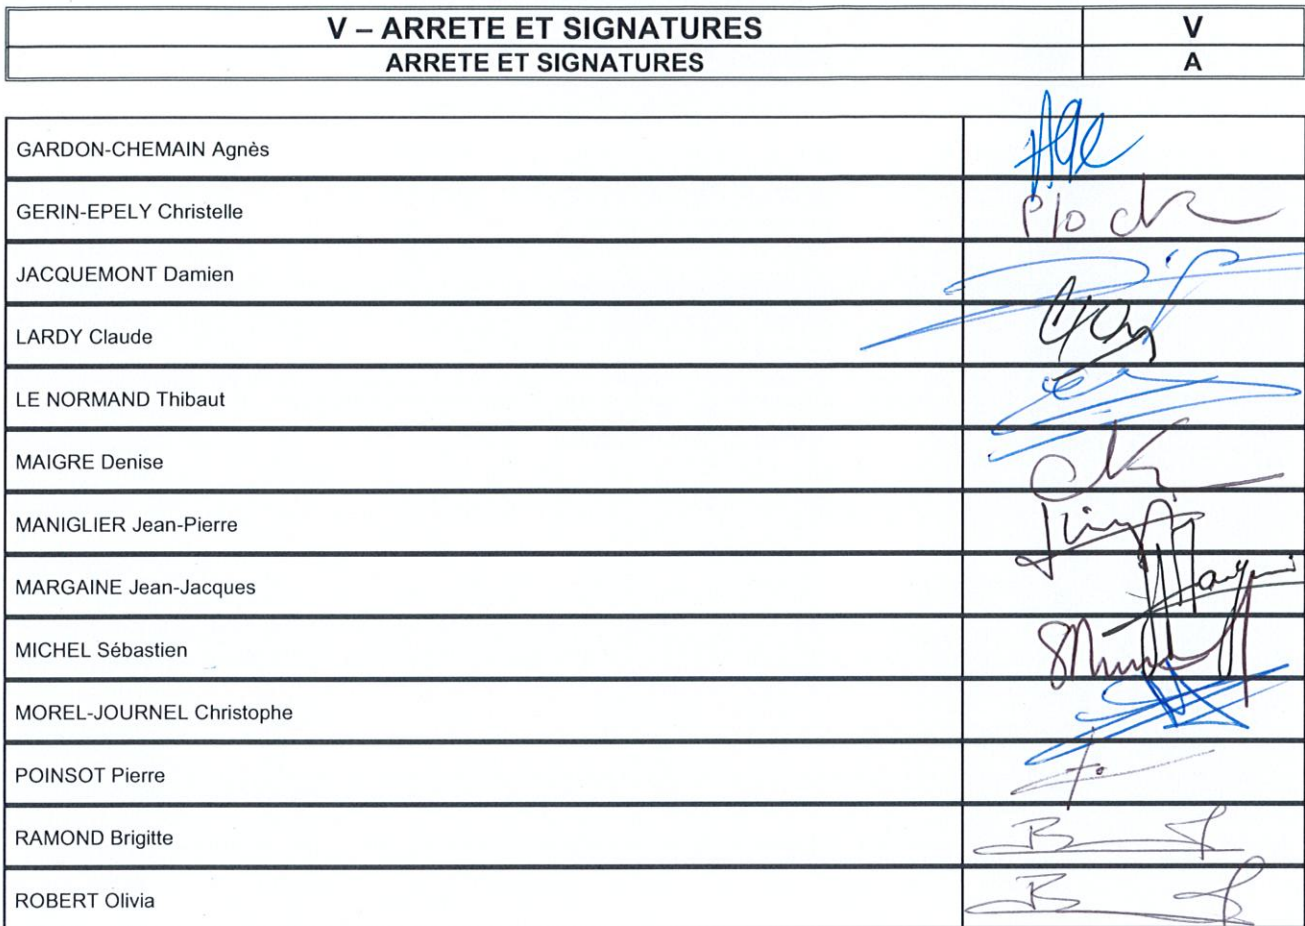 V – ARRETE ET SIGNATURES V
ARRETE ET SIGNATURES A
GARDON-CHEMAIN Agnès
GERIN-EPELY Christelle
JACQUEMONT Damien
LARDY Claude
LE NORMAND Thibaut
MAIGRE Denise
MANIGLIER Jean-Pierre
MARGAINE Jean-Jacques
MICHEL Sébastien
MOREL-JOURNEL Christophe
POINSOT Pierre
RAMOND Brigitte
ROBERT Olivia